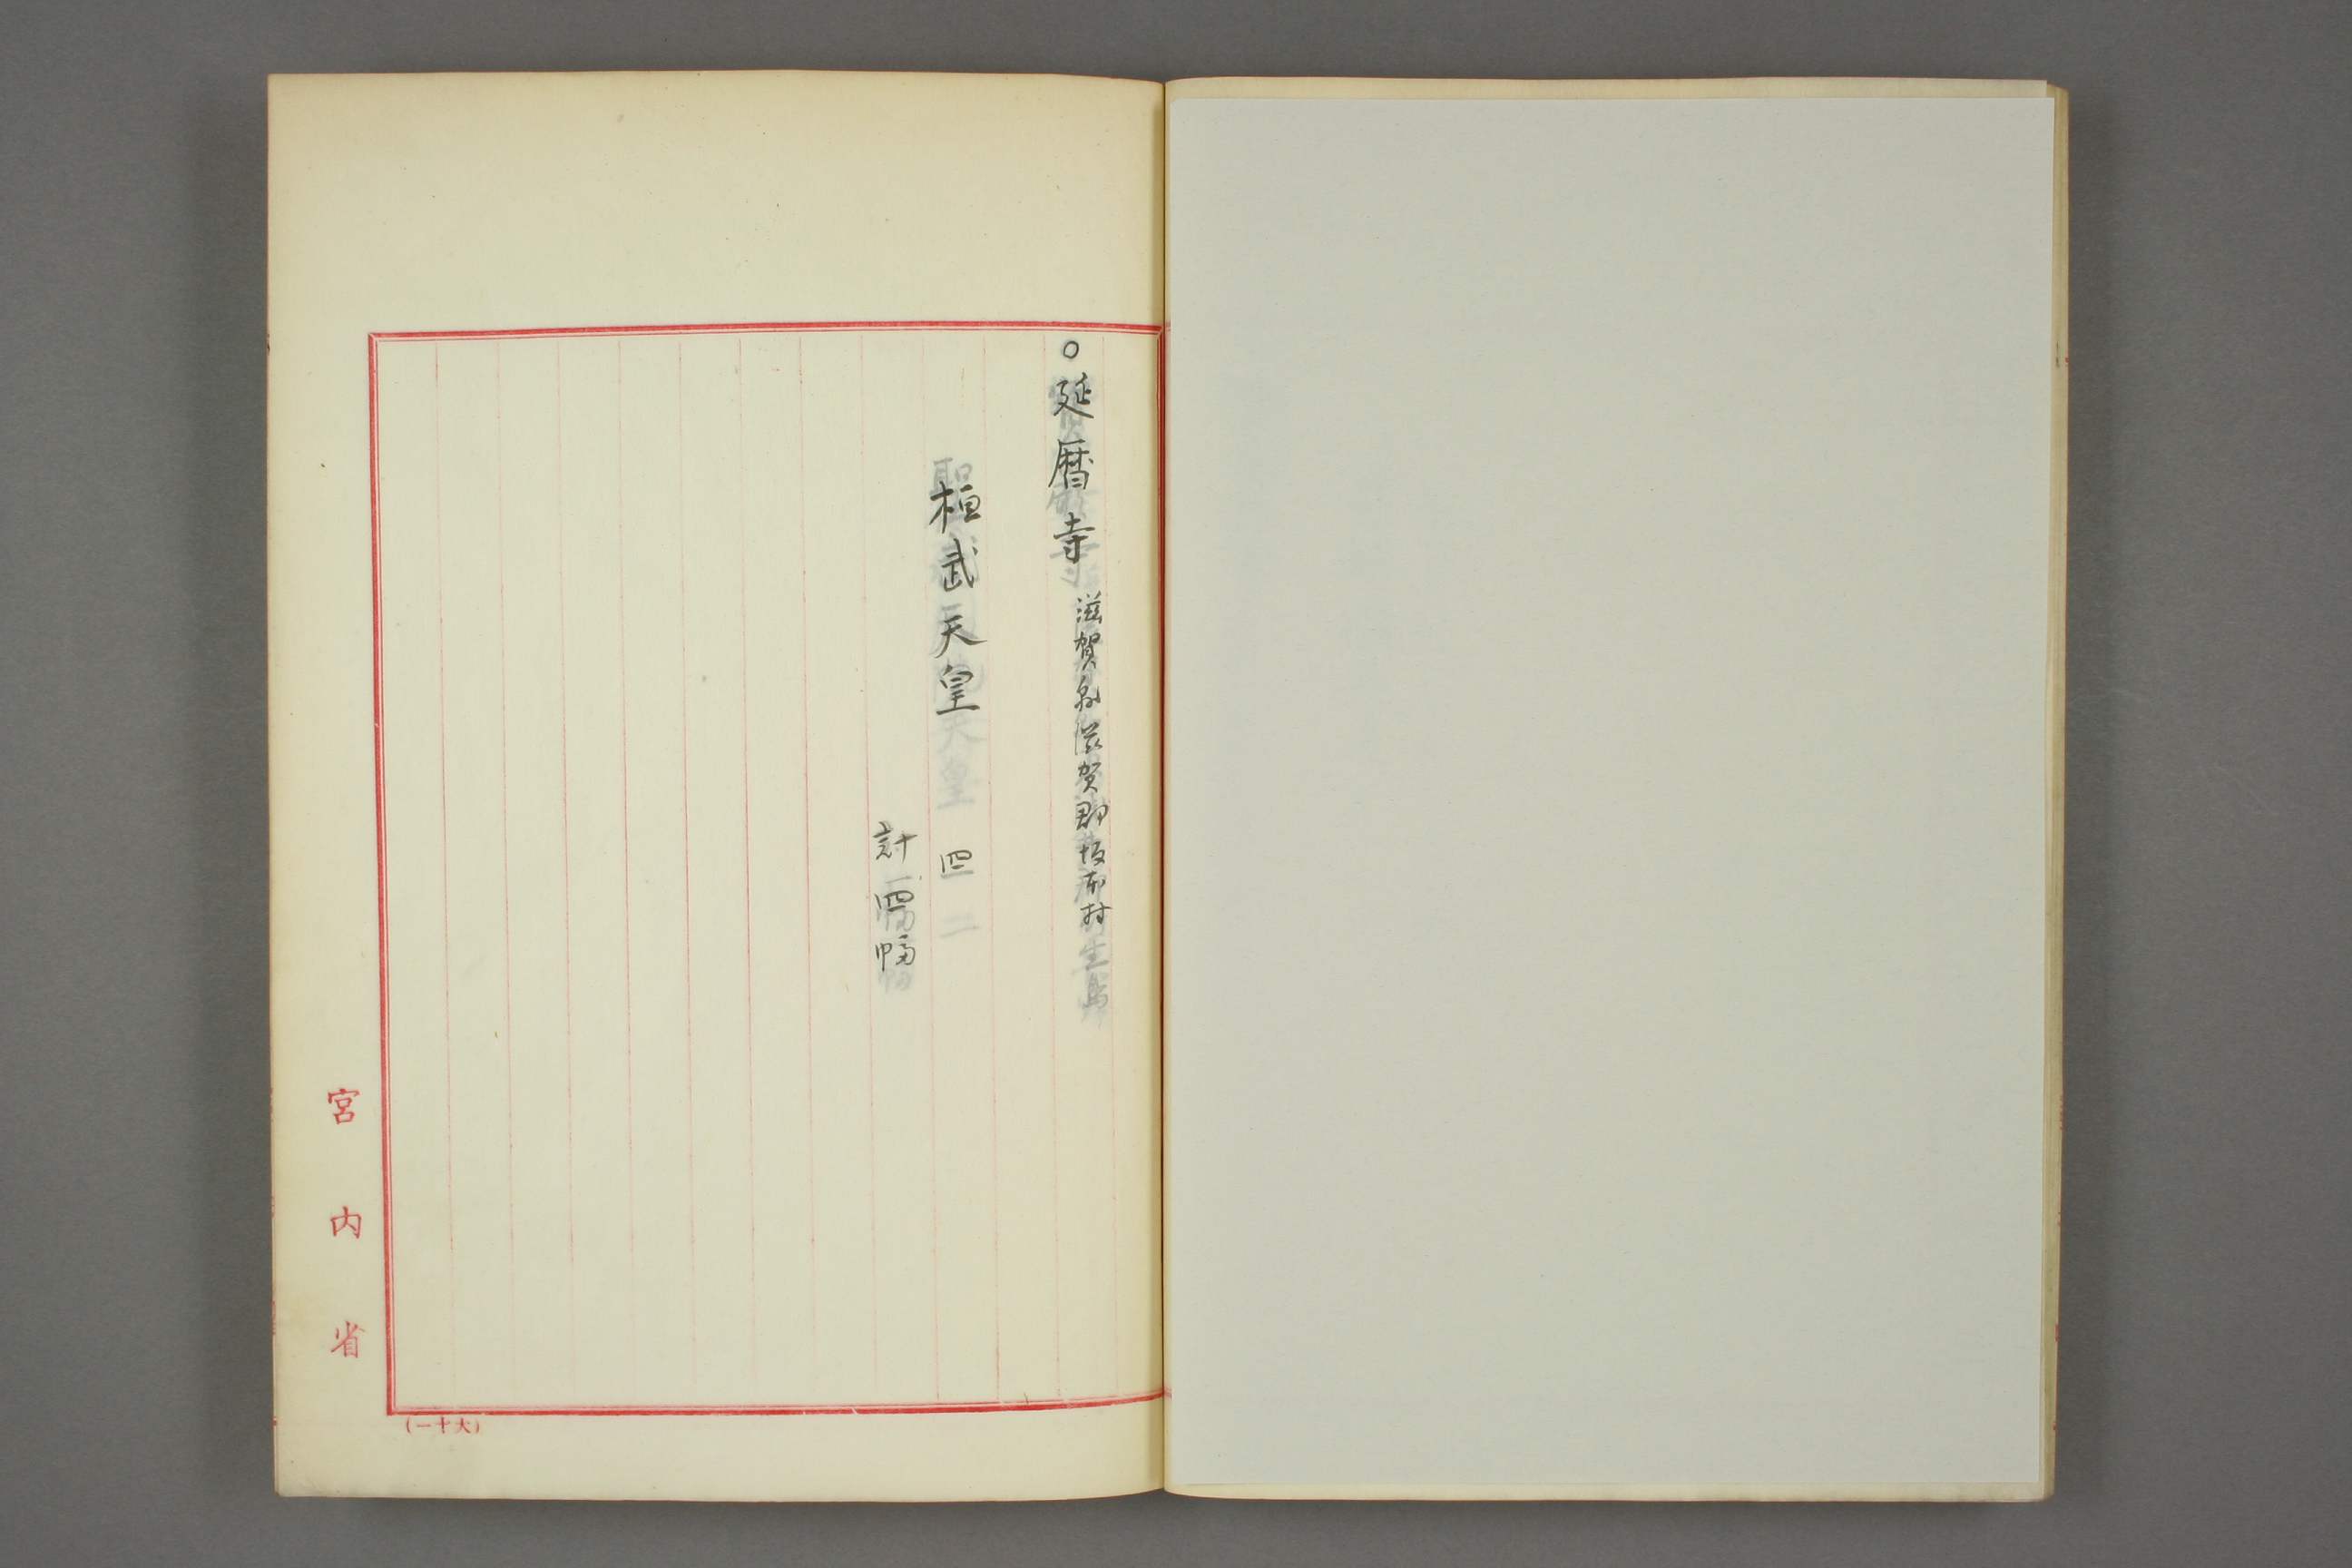 ○延暦寺 滋賀縣滋賀郡坂本村
桓武天皇 四
計四幅
宮内省
(一十大)